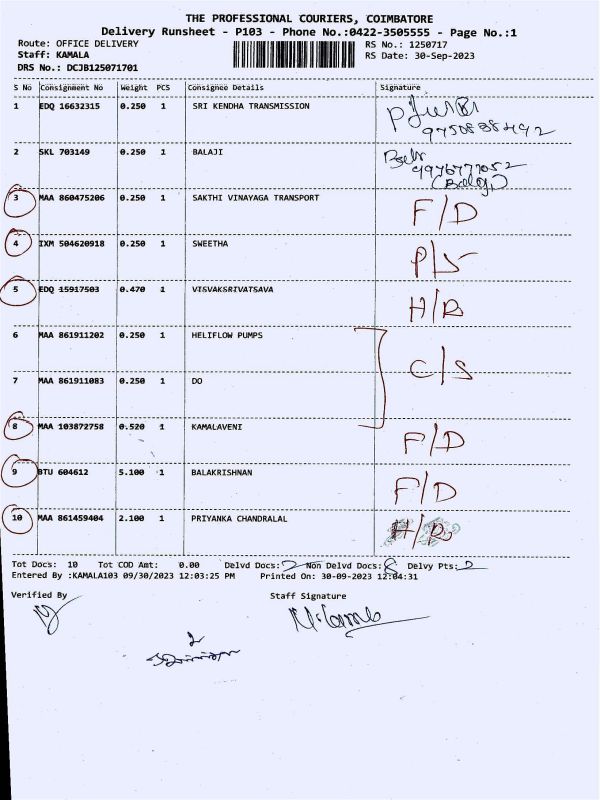 THE PROFESSIONAL COURIERS, COIMBATORE
Delivery Runsheet - P103 - Phone No.:0422-3505555 - Page No.:1
Route: OFFICE DELIVERY RS No.: 1250717
Staff: KAMALA RS Date: 30-Sep-2023
DRS No.: DCJB125071701
S No Consignment No Weight PCS Consignee Details Signature
1 EDQ 16632315 0.250 1 SRI KENDHA TRANSMISSION
9750838492
2 SKL 703149 0.250 1 BALAJI
9976777052
(Balaji)
3 MAA 860475206 0.250 1 SAKTHI VINAYAGA TRANSPORT F/D
4 IXM 504620918 0.250 1 SWEETHA P/S
5 EDQ 15917503 0.470 1 VISVAKSRIVATSAVA H/B
6 MAA 861911202 0.250 1 HELIFLOW PUMPS
C/S
7 MAA 861911083 0.250 1 DO
8 MAA 103872758 0.520 1 KAMALAVENI F/D
9 BTU 604612 5.100 1 BALAKRISHNAN F/D
10 MAA 861459404 2.100 1 PRIYANKA CHANDRALAL H/D
Tot Docs: 10 Tot COD Amt: 0.00 Delvd Docs: 2 Non Delvd Docs: 8 Delvy Pts: 2
Entered By :KAMALA103 09/30/2023 12:03:25 PM Printed On: 30-09-2023 12:04:31
Verified By Staff Signature